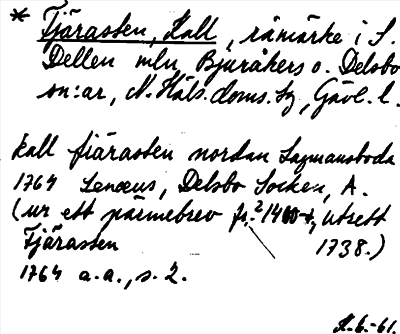 * Fjärasten, Kall, råmärke i S.
Dellen mln Bjuråkers o. Delsbo
sn:ar, N. Häls. doms. sg, Gävl. l.
kall fiärasten nordan Lagmansboda
1764 Lenæus, Delsbo Socken, A.
(ur ett pärmebrev fr. 1400-t, utrett
Fjärasten 1738.)
1764 a.a., s. 2.
-61.